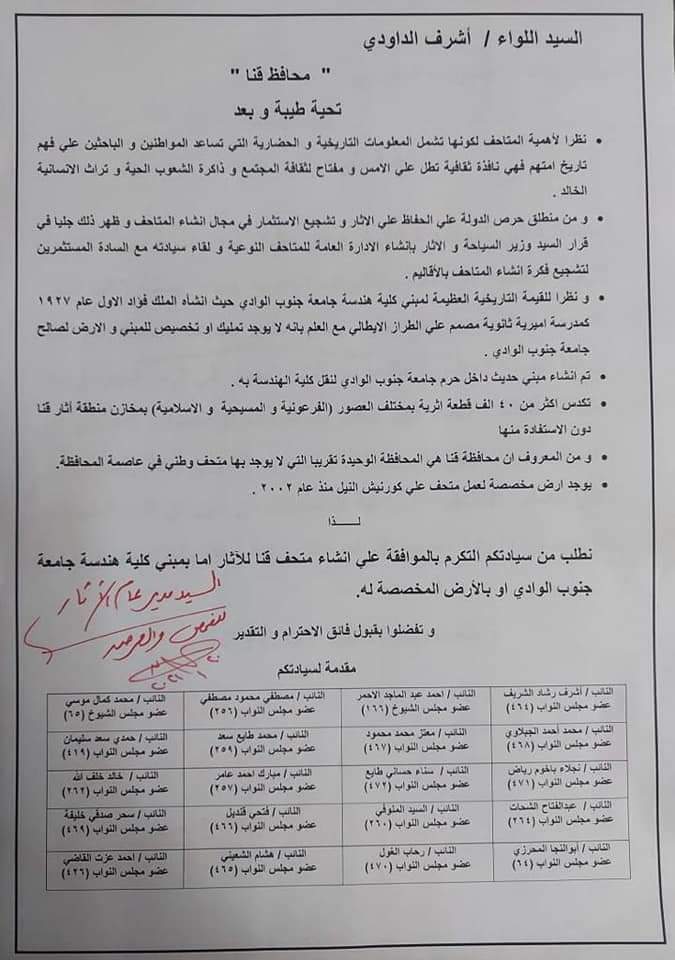 السيد اللواء / أشرف الداودي
" محافظ قنا "
تحية طيبة و بعد
• نظرا لأهمية المتاحف لكونها تشمل المعلومات التاريخية و الحضارية التي تساعد المواطنين و الباحثين علي فهم
تاريخ امتهم فهي نافذة ثقافية تطل علي الامس و مفتاح لثقافة المجتمع و ذاكرة الشعوب الحية و تراث الانسانية
الخالد .
• و من منطلق حرص الدولة علي الحفاظ علي الاثار و تشجيع الاستثمار في مجال انشاء المتاحف و ظهر ذلك جليا في
قرار السيد وزير السياحة و الاثار بإنشاء الادارة العامة للمتاحف النوعية و لقاء سيادته مع السادة المستثمرين
لتشجيع فكرة انشاء المتاحف بالأقاليم .
• و نظرا للقيمة التاريخية العظيمة لمبني كلية هندسة جامعة جنوب الوادي حيث انشأه الملك فؤاد الاول عام ١٩٢٧
كمدرسة اميرية ثانوية مصمم علي الطراز الايطالي مع العلم بانه لا يوجد تمليك او تخصيص للمبني و الارض لصالح
جامعة جنوب الوادي .
• تم انشاء مبني حديث داخل حرم جامعة جنوب الوادي لنقل كلية الهندسة به .
• تكدس اكثر من ٤٠ الف قطعة اثرية بمختلف العصور (الفرعونية و المسيحية و الاسلامية) بمخازن منطقة أثار قنا
دون الاستفادة منها
• و من المعروف ان محافظة قنا هي المحافظة الوحيدة تقريبا التي لا يوجد بها متحف وطني في عاصمة المحافظة.
• يوجد ارض مخصصة لعمل متحف علي كورنيش النيل منذ عام ٢٠٠٢ .
لـــذا
نطلب من سيادتكم التكرم بالموافقة علي انشاء متحف قنا للآثار اما بمبني كلية هندسة جامعة
جنوب الوادي او بالأرض المخصصة له.
السيد مدير عام الآثار
للفحص والعرض
و تفضلوا بقبول فائق الاحترام و التقدير
مقدمة لسيادتكم
النائب / أشرف رشاد الشريف
عضو مجلس النواب (٤٦٤)
النائب / احمد عبد الماجد الاحمر
عضو مجلس الشيوخ (١٦٦)
النائب / مصطفي محمود مصطفي
عضو مجلس النواب (٢٥٦)
النائب / محمد كمال موسي
عضو مجلس الشيوخ (٦٥)
النائب / محمد أحمد الجبلاوي
عضو مجلس النواب (٤٦٨)
النائب / معتز محمد محمود
عضو مجلس النواب (٤٦٧)
النائب / محمد طايع سعد
عضو مجلس النواب (٢٥٩)
النائب / حمدي سعد سليمان
عضو مجلس النواب (٤١٩)
النائب / نجلاء باخوم رياض
عضو مجلس النواب (٤٧١)
النائب / سناء حساني طايع
عضو مجلس النواب (٤٧٢)
النائب / مبارك احمد عامر
عضو مجلس النواب (٢٥٧)
النائب / خالد خلف الله
عضو مجلس النواب (٢٦٢)
النائب / عبدالفتاح الشحات
عضو مجلس النواب (٢٦٤)
النائب / السيد المنوفي
عضو مجلس النواب (٢٦٠)
النائب / فتحي قنديل
عضو مجلس النواب (٤٦٦)
النائب / سحر صدقي خليفة
عضو مجلس النواب (٤٦٩)
النائب / أبوالنجا المحرزي
عضو مجلس النواب (٦٤)
النائب / رحاب الغول
عضو مجلس النواب (٤٧٠)
النائب / هشام الشعيني
عضو مجلس النواب (٤٦٥)
النائب / احمد عزت القاضي
عضو مجلس النواب (٤٢٦)